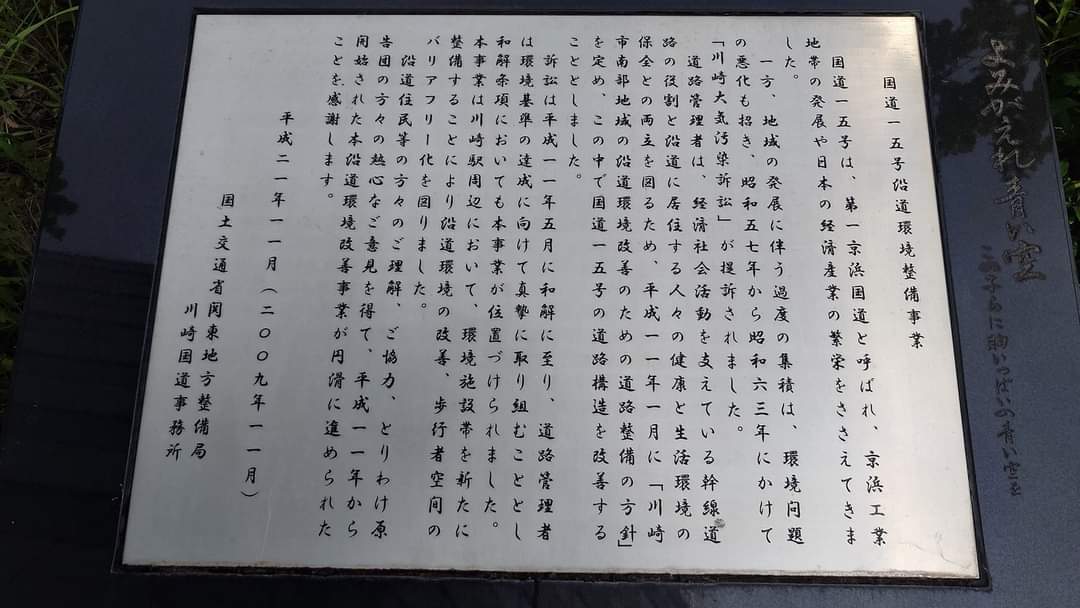 よみがえれ青い空
この子らに胸いっぱいの青い空を
国道一五号沿道環境整備事業
国道一五号は、第一京浜国道と呼ばれ、京浜工業
地帯の発展や日本の経済産業の繁栄をささえてきま
した。
一方、地域の発展に伴う過度の集積は、環境問題
の悪化も招き、昭和五七年から昭和六三年にかけて
「川崎大気汚染訴訟」が提訴されました。
道路管理者は、経済社会活動を支えている幹線道
路の役割と沿道に居住する人々の健康と生活環境の
保全との両立を図るため、平成一一年一月に「川崎
市南部地域の沿道環境改善のための道路整備の方針」
を定め、この中で国道一五号の道路構造を改善する
こととしました。
訴訟は平成一一年五月に和解に至り、道路管理者
は環境基準の達成に向けて真摯に取り組むこととし
和解条項においても本事業が位置づけられました。
本事業は川崎駅周辺において、環境施設帯を新たに
整備することにより沿道環境の改善、歩行者空間の
バリアフリー化を図りました。
沿道住民等の方々のご理解、ご協力、とりわけ原
告団の方々の熱心なご意見を得て、平成一一年から
開始された本沿道環境改善事業が円滑に進められた
ことを感謝します。
平成二一年一一月(二〇〇九年一一月)
国土交通省関東地方整備局
川崎国道事務所